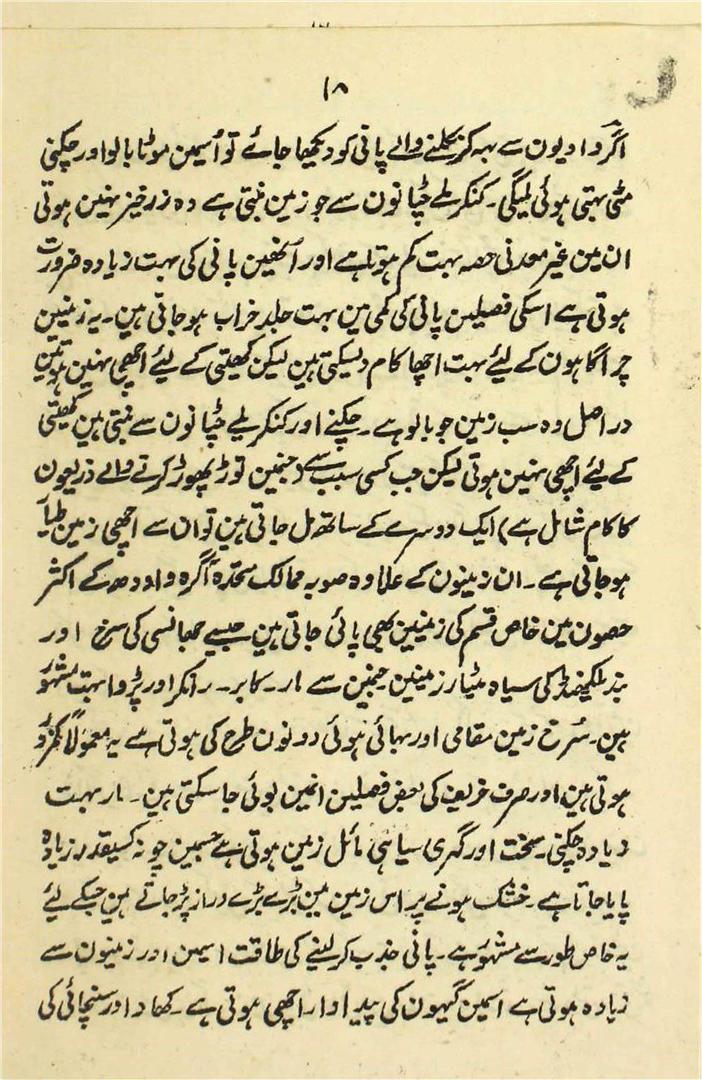 ۱۸
اگر وادیون سے بہہ کر نکلنے والے پانی کو دیکھا جائے تو اُسمین موٹا بالو اور چکنی
مٹی بہتی ہوئی ملیگی۔ کنکریلے چٹانون سے جو زمین بنتی ہے وہ زرخیز نہین ہوتی
ان مین غیر معدنی حصہ بہت کم ہوتا ہے اور اُنھین پانی کی بہت زیادہ ضرورت
ہوتی ہے اسکی فصلین پانی کی کمی مین بہت جلد خراب ہوجاتی ہین۔ یہ زمینین
چراگاہون کے لیئے بہت اچھا کام دیسکتی ہین لیکن کھیتی کے لیئے اچھی نہین ہوتین
دراصل وہ سب زمین جو بالو ہے۔ چکنے اور کنکریلے چٹانون سے بنتی ہین کھیتی
کے لیئے اچھی نہین ہوتی لیکن جب کسی سبب سے (جنمین توڑ پھوڑ کرنے والے ذریعون
کا کام شامل ہے) ایک دوسرے کے ساتھ مل جاتی ہین تو ان سے اچھی زمین طیار
ہوجاتی ہے۔ ان زمینون کے علاوہ صوبہ ممالک متحدہ آگرہ و اودھ کے اکثر
حصون مین خاص قسم کی زمینین بھی پائی جاتی ہین جیسے جھانسی کی سرخ اور
بندیلکھنڈ کی سیاہ مٹیار زمینین جنمین سے مار۔ کابر۔ رانکر اور پڑوا بہت مشہور
ہین۔ سُرخ زمین مقامی اور بہائی ہوئی دونون طرح کی ہوتی ہے یہ معمولاً کمزور
ہوتی ہین اور صرف خریف کی بعض فصلین انمین بوئی جاسکتی ہین۔ مار بہت
زیادہ چکنی۔ سخت اور گہری سیاہی مائل زمین ہوتی ہے جسمین چونہ کسیقدر زیادہ
پایا جاتا ہے۔ خشک ہونے پر اس زمین مین بڑے بڑے دراز پڑجاتے ہین جسکے لیئے
یہ خاص طور سے مشہور ہے۔ پانی جذب کرلینے کی طاقت اسمین اور زمینون سے
زیادہ ہوتی ہے اسمین گیہون کی پیداوار اچھی ہوتی ہے۔ کھاد اور سنچائی کی